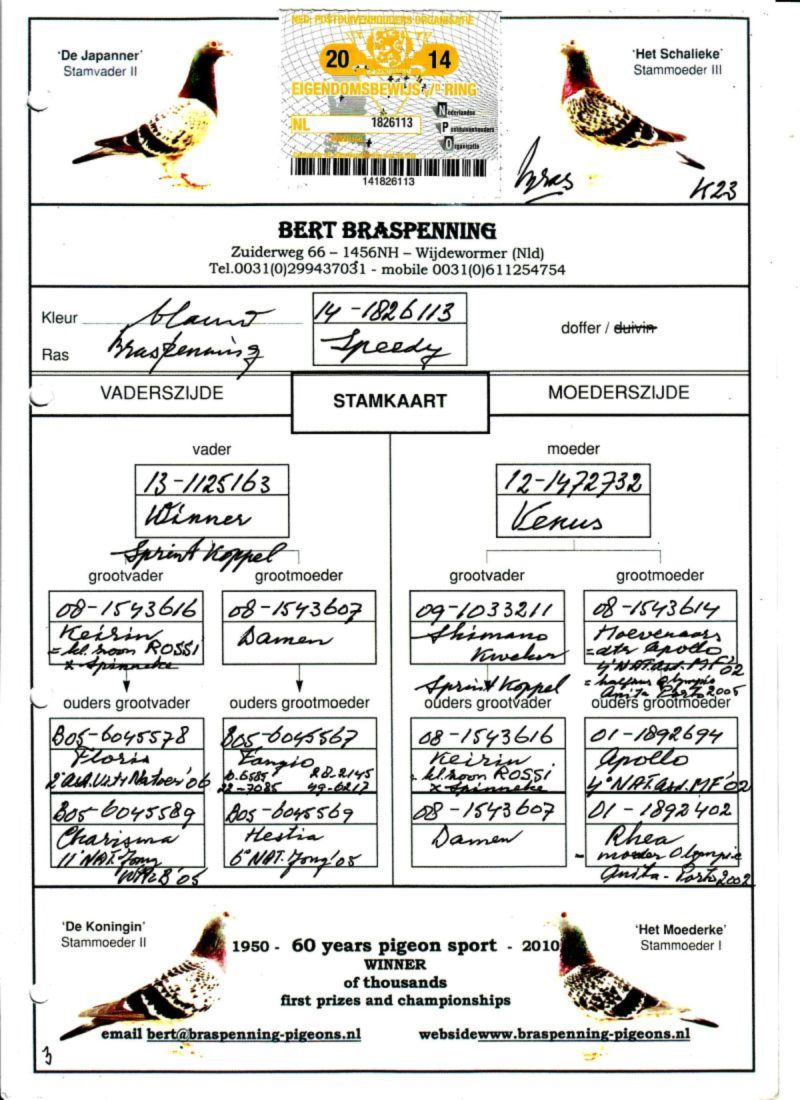 NED. POSTDUIVENHOUDERS ORGANISATIE
20 14
EIGENDOMSBEWIJS v/D RING
NL 1826113
Nederlandse
Postduivenhouders
Organisatie
141826113
'De Japanner'
Stamvader II
'Het Schalieke'
Stammoeder III
Bras
K23
BERT BRASPENNING
Zuiderweg 66 – 1456NH – Wijdewormer (Nld)
Tel.0031(0)299437031 - mobile 0031(0)611254754
Kleur blauw
Ras Braspenning
14-1826113
Speedy
doffer / duivin
VADERSZIJDE
STAMKAART
MOEDERSZIJDE
vader
13-1125163
Winner
Sprint Koppel
moeder
12-1472732
Venus
grootvader
08-1543616
Keirin
= kl. zoon ROSSI
x Spinneke
grootmoeder
08-1543607
Damen
grootvader
09-1033211
Shimano
Kweker
Sprint Koppel
grootmoeder
08-1543614
Hoevenaars
= dtr Apollo
4e NAT. ass. MF'02
= halfzus Olympic
Anita Porto 2005
ouders grootvader
B05-6045578
Floris
B05-6045589
Charisma
11e NAT. Jong
'05
ouders grootmoeder
B05-6045567
Fangio
B05-6045569
Hestia
6e NAT. Jong '05
ouders grootvader
08-1543616
Keirin
= kl. zoon ROSSI
x Spinneke
08-1543607
Damen
ouders grootmoeder
01-1892694
Apollo
4e NAT. ass. MF'02
01-1892402
Rhea
- moeder Olympic
Anita - Porto 2002
'De Koningin'
Stammoeder II
'Het Moederke'
Stammoeder I
1950 - 60 years pigeon sport - 2010
WINNER
of thousands
first prizes and championships
email bert@braspenning-pigeons.nl
websidewww.braspenning-pigeons.nl
3